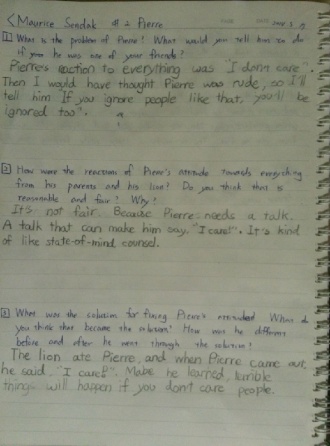 < Maurice Sendak Pierre
1 What is the problem of Pierre? What would you tell him to do
if you he was one of your friends?
Pierre's reaction to everything was "I don't care".
Then I would have thought Pierre was rude, so I'll
tell him If you ignore people like that, you'll be
ignored too".
How were the reactions of Pierre's attitude towards everything
from his parents and his lion? Do you think that is
reasonable and fair? Why?
It's not fair. Because Pierre needs a talk.
A talk that can make him say. "I care!". It's kind
of like state-of-mind counsel.
What was the solution for fixing Pierre's attitude? What do
you think that became the solution? How was he different
before and after he went through the solution?
The lion ate Pierre, and when Pierre came out,
he said, "I care!". Mabe he learned, terrible
things will happen if you don't care people.